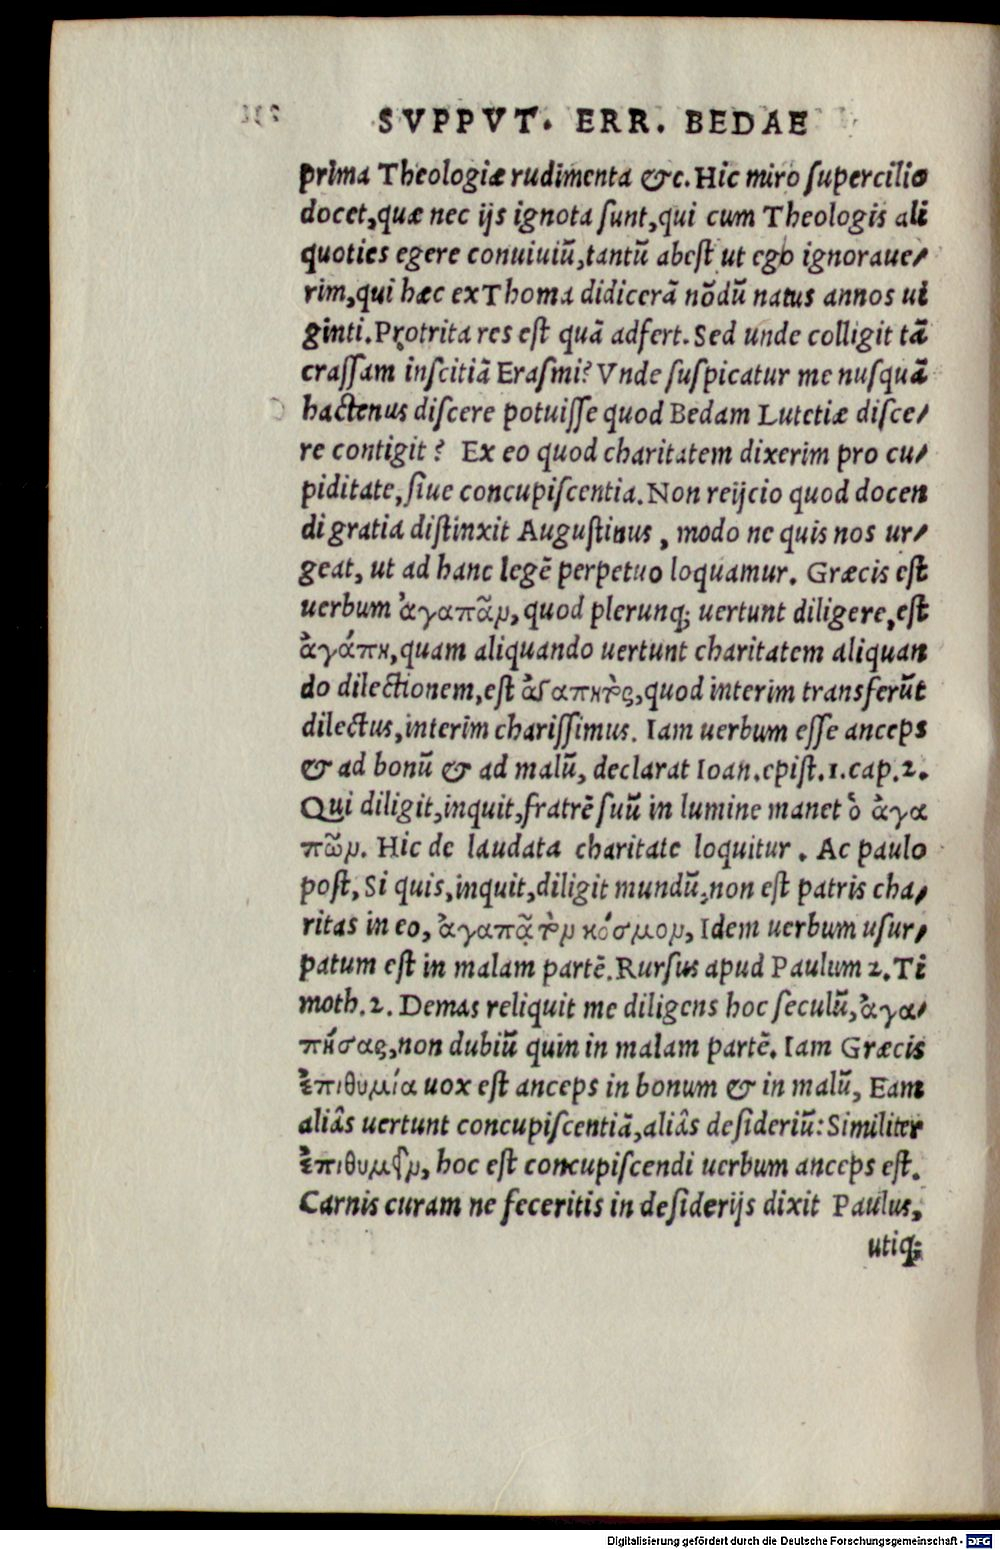 SVPPVT. ERR. BEDAE
prima Theologiæ rudimenta &c. Hic miro ſupercilio
docet, quæ nec ijs ignota ſunt, qui cum Theologis ali
quoties egere conuiuiũ, tantũ abeſt ut ego ignoraue/
rim, qui hæc ex Thoma didicerã nõdũ natus annos ui
ginti. Protrita res eſt quã adfert. Sed unde colligit tã
craſſam inſcitiã Eraſmi? Vnde ſuſpicatur me nuſquã
hactenus diſcere potuiſſe quod Bedam Lutetiæ diſce/
re contigit? Ex eo quod charitatem dixerim pro cu/
piditate, ſiue concupiſcentia. Non reijcio quod docen
di gratia diſtinxit Auguſtinus, modo ne quis nos ur/
geat, ut ad hanc legẽ perpetuo loquamur. Græcis eſt
uerbum ἀγαπᾶν, quod plerunq; uertunt diligere, eſt
ἀγάπη, quam aliquando uertunt charitatem aliquan
do dilectionem, eſt ἀγαπητὸς, quod interim transferũt
dilectus, interim chariſſimus. Iam uerbum eſſe anceps
& ad bonũ & ad malũ, declarat Ioan. epiſt. 1. cap. 2.
Qui diligit, inquit, fratrẽ ſuũ in lumine manet ὁ ἀγα
πῶν. Hic de laudata charitate loquitur. Ac paulo
poſt, Si quis, inquit, diligit mundũ, non eſt patris cha/
ritas in eo, ἀγαπᾷ τὸν κόσμον, Idem uerbum uſur/
patum eſt in malam partẽ. Rurſus apud Paulum 2. Ti
moth. 2. Demas reliquit me diligens hoc ſeculũ, ἀγα/
πήσας, non dubiũ quin in malam partẽ. Iam Græcis
ἐπιθυμία uox eſt anceps in bonum & in malũ, Eam
aliâs uertunt concupiſcentiã, aliâs deſideriũ: Similiter
ἐπιθυμεῖν, hoc eſt concupiſcendi uerbum anceps eſt.
Carnis curam ne feceritis in deſiderijs dixit Paulus,
utiq;
Digitalisierung gefördert durch die Deutsche Forschungsgemeinschaft - DFG